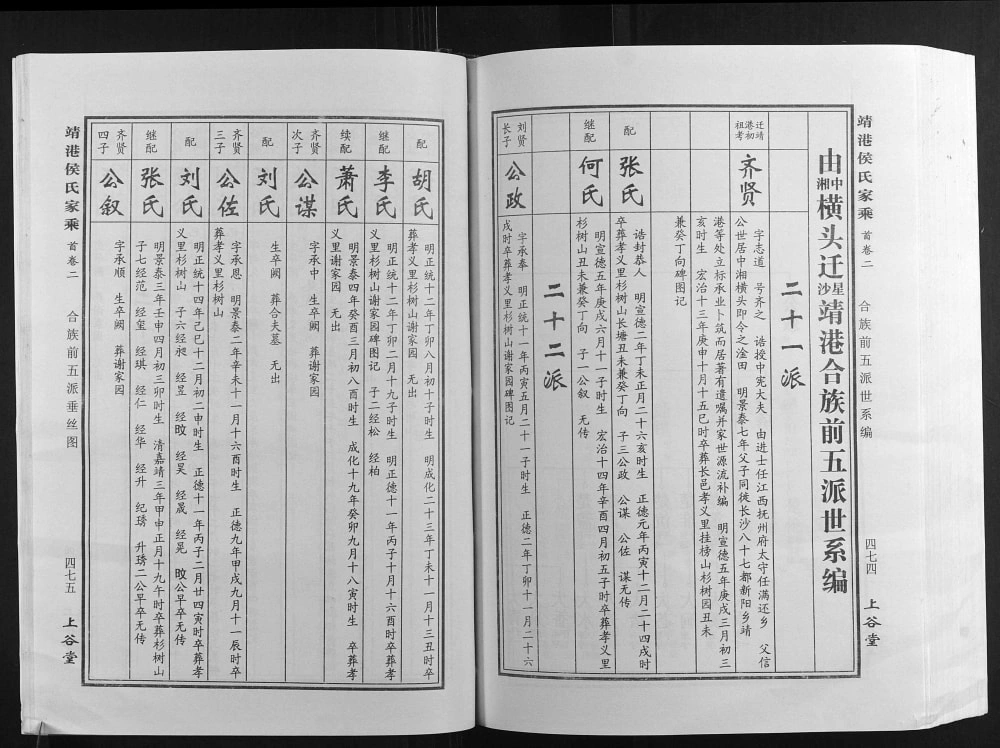 靖港侯氏家乘
首卷二
合族前五派世系编
四七四
上谷堂
由中湘横头迁星沙靖港合族前五派世系编
二十一派
迁靖港初祖考
齐贤
字志道 号齐之 诰授中宪大夫 由进士任江西抚州府太守任满还乡 父信
公世居中湘横头即令之淦田 明景泰七年父子同徙长沙八十七都新阳乡靖
港等处立标承业卜筑而居著有遗嘱并家世源流补编 明宣德五年庚戌三月初三
亥时生 宏治十三年庚申十月十五巳时卒葬长邑孝义里挂榜山杉树园丑未
兼癸丁向碑图记
配
张氏
诰封恭人 明宣德二年丁未正月二十六亥时生 正德元年丙寅十二月二十四戌时
卒葬孝义里杉树山长塘丑未兼癸丁向 子三公政 公谋 公佐 谋无传
继配
何氏
明宣德五年庚戌六月十一子时生 宏治十四年辛酉四月初五子时卒葬孝义里
杉树山丑未兼癸丁向 子一公叙 无传
二十二派
刘贤长子
公政
字承奉 明正统十一年丙寅五月二十一子时生 正德二年丁卯十一月二十六
戌时卒葬孝义里杉树山谢家园碑图记
配
胡氏
明正统十二年丁卯八月初十子时生 明成化二十三年丁未十一月十三丑时卒
葬孝义里杉树山谢家园 无出
继配
李氏
明正统十二年丁卯二月十九子时生 明正德十一年丙子十月十六酉时卒葬孝
义里杉树山谢家园碑图记 子二经松 经柏
续配
萧氏
明景泰四年癸酉三月初八酉时生 成化十九年癸卯九月十八寅时生 卒葬孝
义里谢家园 无出
齐贤次子
公谋
字承中 生卒阙 葬谢家园
配
刘氏
生卒阙 葬合夫墓 无出
齐贤三子
公佐
字承恩 明景泰二年辛未十一月十六酉时生 正德九年甲戌九月十一辰时卒
葬孝义里杉树山
配
刘氏
明正统十四年己巳十二月初二申时生 正德十一年丙子二月廿四寅时卒葬孝
义里杉树山 子六经昶 经昱 经旼 经昊 经晟 经晃 旼公早卒无传
继配
张氏
明景泰三年壬申四月初三卯时生 清嘉靖三年甲申正月十九午时卒葬杉树山
子七经范 经玺 经琪 经仁 经华 经升 纪琇 升琇二公早卒无传
齐贤四子
公叙
字承顺 生卒阙 葬谢家园
靖港侯氏家乘
首卷二
合族前五派垂丝图
四七五
上谷堂